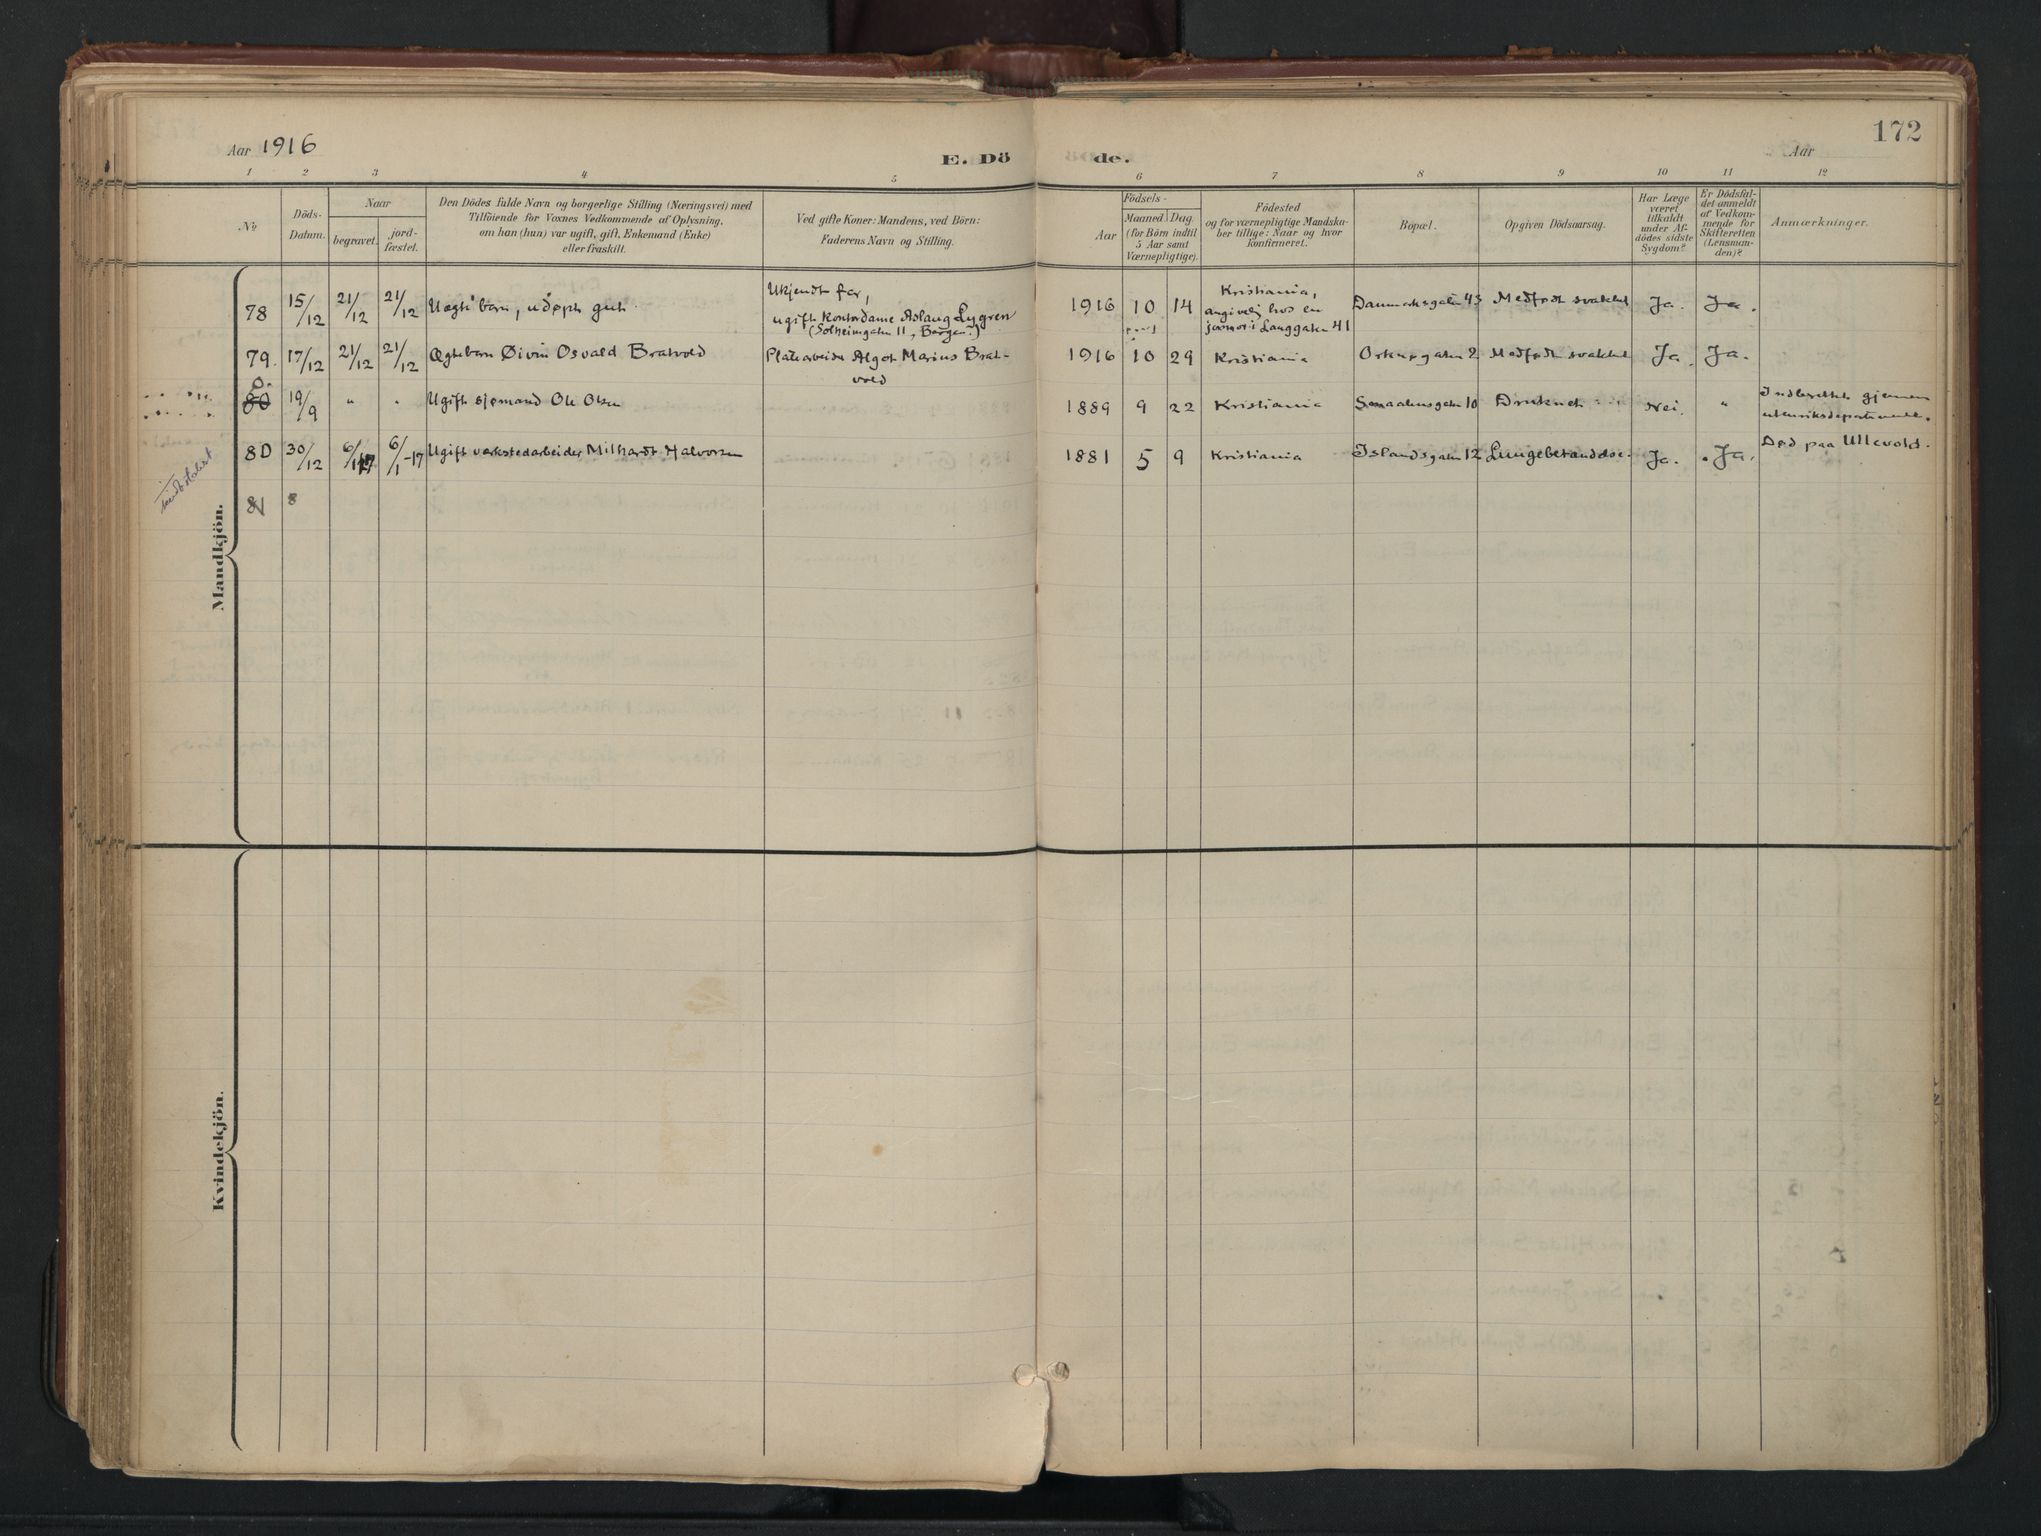 172
Aar 1916
E. Dö
de.
Aar
1 2 3 4 5 6 7 8 9 10 11 12
No
Döds-
Datum.
Naar
begravet.
jord-
fæstet.
Den Dödes fulde Navn og borgerlige Stilling (Næringsvei) med
Tilföiende for Voxnes Vedkommende af Oplysning,
om han (hun) var ugift, gift, Enkemand (Enke)
eller fraskilt.
Ved gifte Koner: Mandens, ved Börn:
Faderens Navn og Stilling.
Födsels-
Aar
Maaned. Dag.
(for Börn indtil
5 Aar samt
Værnepligtige).
Födested
og for værnepligtige Mandska-
ber tillige: Naar og hvor
konfirmeret.
Bopæl.
Opgiven Dödsaarsag.
Har Læge
været
tilkaldt
under Af-
dödes sidste
Sygdom?
Er Dödsfal-
det anmeldt
af Vedkom-
mende for
Skifteretten
(Lensman-
den)?
Anmærkninger.
Mandkjön.
78 15/12 21/12 21/12 Uægte barn, udøpt gut.
Ukjendt far,
ugift kontordame Aslaug Lygren
(Solheimgaten 11, Bergen.)
1916 10 14
Kristiania,
angivelig hos en
jormor i Langgaten 41
Danmarksgaten 43 Medfødt svakhet Ja. Ja.
79. 17/12 21/12 21/12 Ægtebarn Øivin Osvald Bratvold
Platearbeider Algot Marius Brat-
vold
1916 10 29 Kristiania 2 Medfødt svakhet Ja. Ja.
80 19/9 " " Ugift sjømand Ole Olsen
1889 9 22 Kristiania Smaalensgaten 10 Druknet Nei. "
Indberettet gjennem
utenriksdepartementet.
80 30/12 6/1-17 6/1-17 Ugift verkstedarbeider Milhardt Halvorsen
1881 5 9 Kristiania Islandsgaten 12 Lungebetændelse. Ja. Ja.
Død paa Ullevold.
81 8
Kvindekjön.